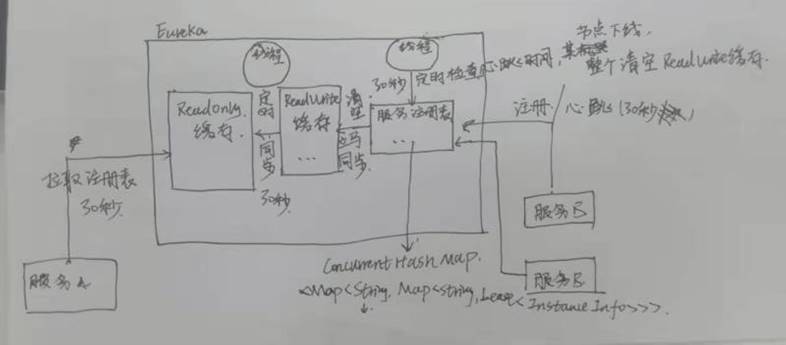 Eureka
线程
线程
节点下线,
30秒 定时检查心跳时间,某
整个清空ReadWrite缓存.
ReadOnly
缓存.
定时
同步
30秒
ReadWrite
缓存
...
清空
立马
同步.
服务注册表
...
注册. 心跳(30秒)
拉取注册表
30秒.
服务A
服务B
服务B
Concurrent Hash Map.
<Map<String, Map<string, Lease<InstanceInfo>>>.